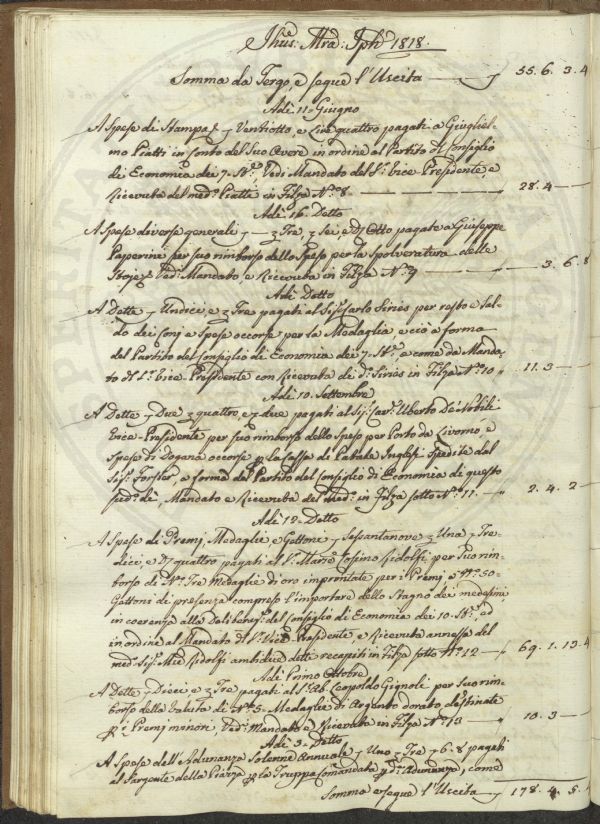 Jhus: Mra: Jph 1818.
Somma da Tergo, e segue l'Uscita 55. 6. 3. 4
Adì 11. Giugno
A Spese di Stampa Ventiotto, e Lire quattro pagati a Guigliel-
mo Piatti in Conto del Suo Avere in ordine al Partito del Consiglio
di Economia dei 7. Vedi Mandato del Vice Presidente, e
Ricevuta del med. Piatti in Filza N.° 8 28. 4
Adì 16. Detto
A Spese diverse generali Tre, Sei, e Otto pagate a Giuseppe
Paperini per suo rimborso dello Speso per la Spolveratura delle
Ved. Mandato, e Ricevuta in Filza N.° 9 3. 6. 8
Adì Detto
A Dette Undici, e Tre pagati al Sig. Carlo Siries per resto e Sal-
do dei Conj e Spese occorse per la Medaglia e ciò a forma
del Partito del Consiglio di Economia dei 7. e come da Manda-
to Vice-Presidente con Ricevuta di d. Siries in Filza N.° 10 11. 3
Adì 10. Settembre
A Dette Due quattro, e due pagati al Sig. Cav. Uberto De' Nobili
Vice-Presidente per suo rimborso dello Speso per Porto da Livorno, e
Spese di Dogana occorse la Cassa di Patate Inglesi Spedite dal
Sig. a forma del Partito del Consiglio di Economia di questo
dì, Mandato e Ricevuta del med. in Filza sotto N.° 11. 2. 4. 2
Adì 12. Detto
A Spese di Premj, Medaglie e Gettoni Sessantanove Una Tre-
dici, e quattro pagati al Cosimo Ridolfi per Suo rim-
borso di N.° Tre Medaglie di oro improntate per i Premj, e N.° 50.
Gettoni di presenza compreso l'importare dello Stagno dei medesimi
in coerenza alla Deliberaz. del Consiglio di Economia dei 10. ed
in ordine al Mandato Vice Presidente, e Ricevuta annessa del
med. Sig. Ridolfi ambidue detti recapiti in Filza sotto N.° 12 69. 1. 13. 4
Adì Primo Ottobre
A Dette Dieci e Tre pagati al Sig. Ab. Leopoldo Gignoli per Suo rim-
borso della Valuta di N.° 5. Medaglie di Argento dorato destinate
Premj minori, Ved. Mandato e Ricevuta in Filza N.° 13 10. 3
Adì 3. Detto
A Spese dell'Adunanza Solenne Annuale Uno Tre 6. 8 pagati
al Sargente della Piazza la Truppa Comandata d. Adunanza, come
Somma e segue l'Uscita 178. 4. 5.